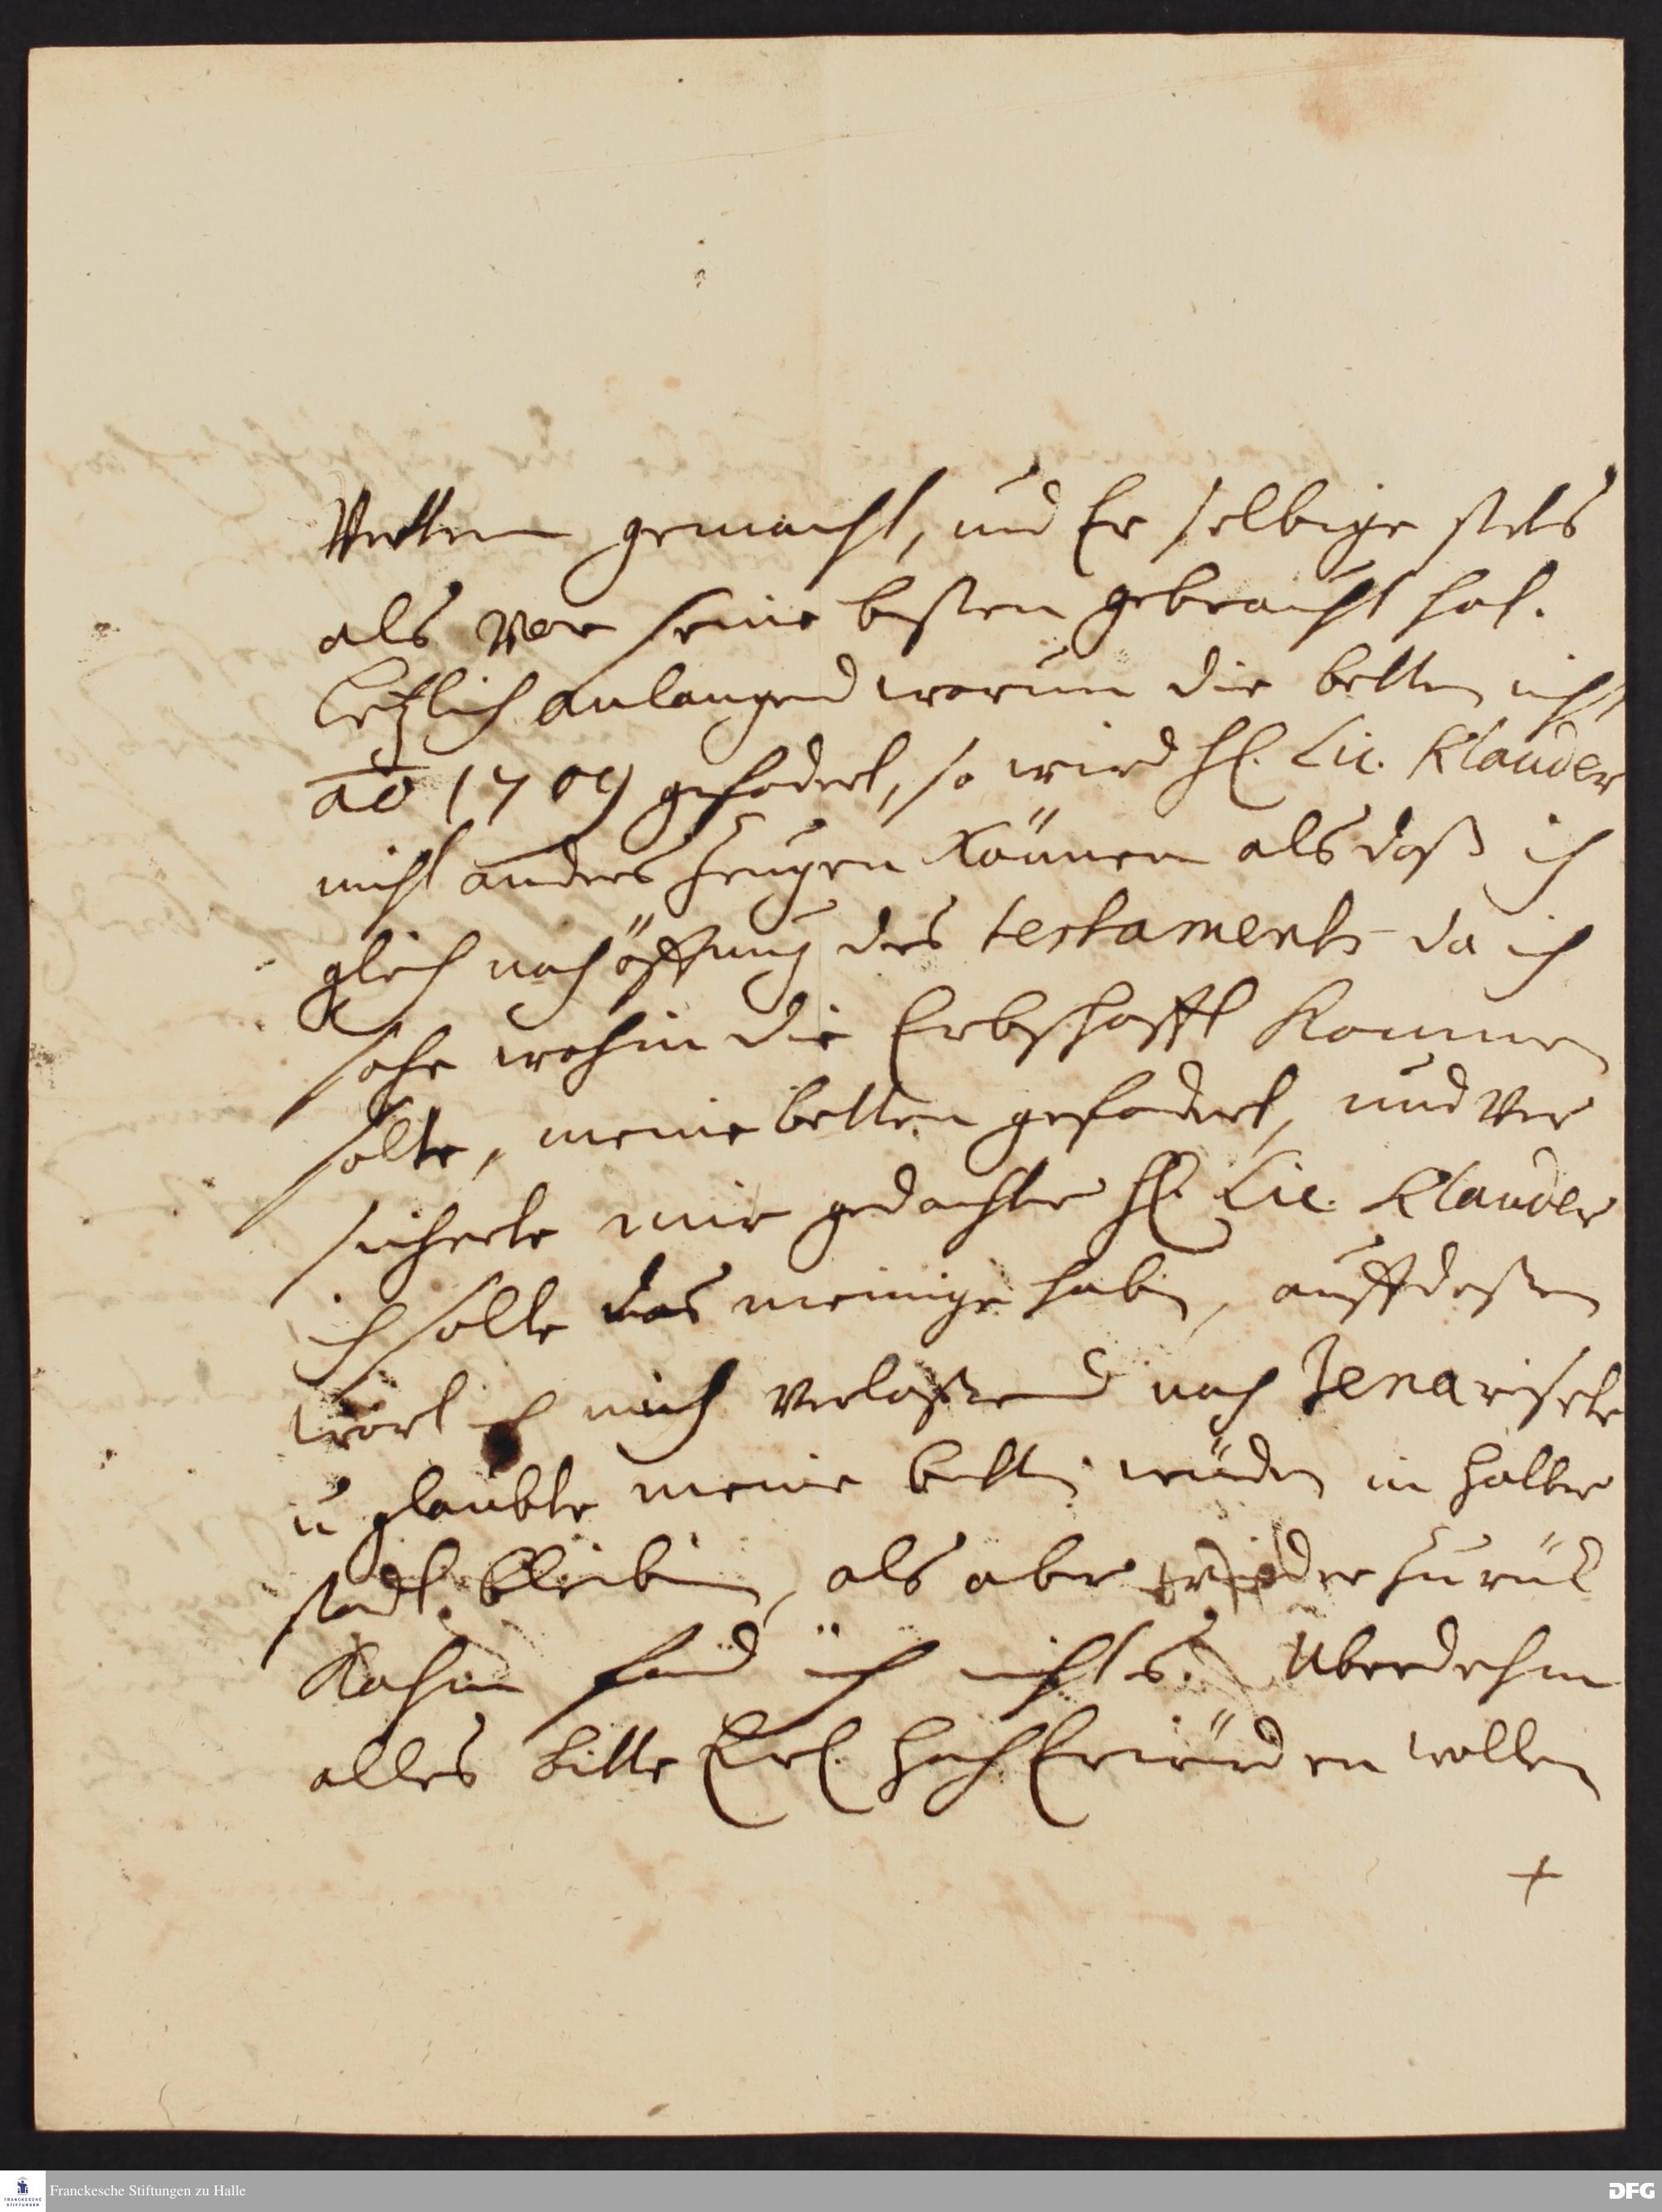 Vettern gemacht, und Er selbige stets
als vor seine besten gebraucht hat.
Letzlich anlangend warum die betten nicht
ao 1709 gefodert, so wird H. Lic. Klauder
nicht anders zeugen können als daß ich
gleich nach öffnung des testaments da ich
sahe wohin die Erbschafft kommen
solte, meine betten gefodert, und ver
sicherte mir gedachter H. Lic. Klauder
ich solte das meinige haben, auff deßen
wort ich mich verlaßend nach Jena reisete
u glaubte meine betten würden in Halber
stadt bleiben, als aber wieder zurück
kahm fand ich nichts. Uberdehm
alles bitte Ewl. HochErwürden wollen
+
Franckesche Stiftungen zu Halle
FRANCKESCHE
STIFTUNGEN
DFG